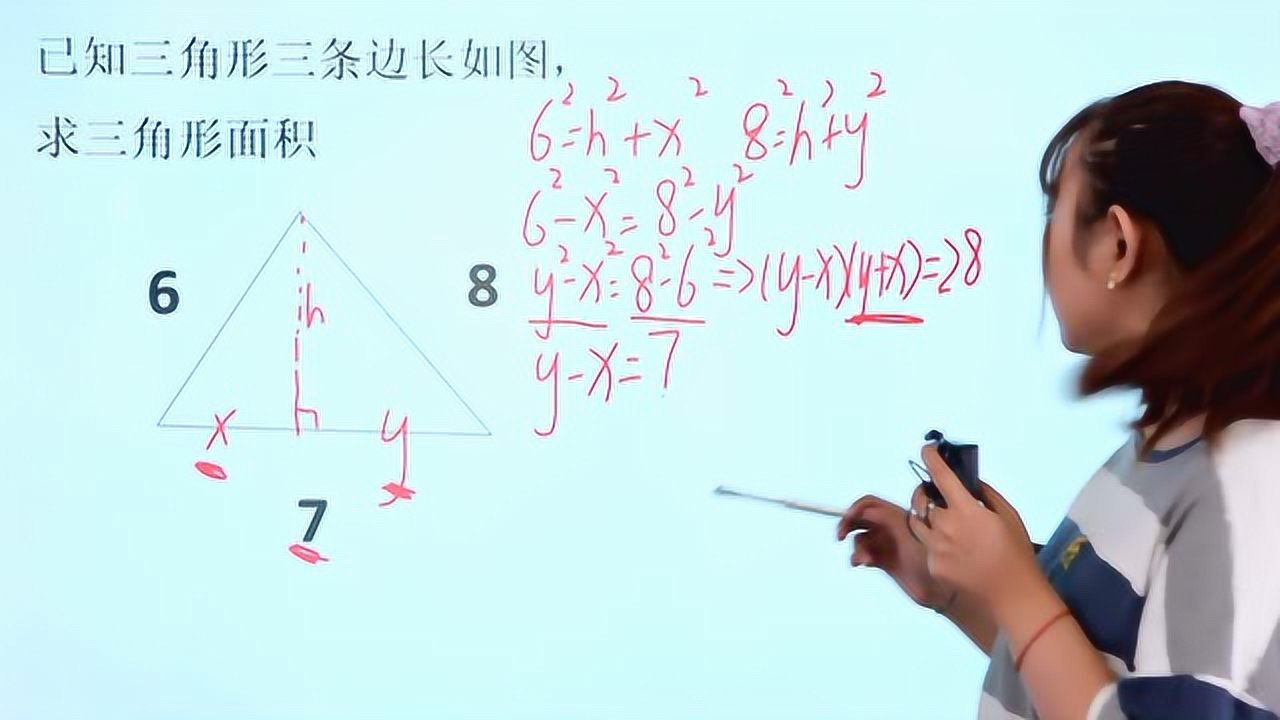 已知三角形三条边长如图，
求三角形面积
6²=h²+x² 8²=h²+y²
6²-x²=8²-y²
y²-x²=8²-6² =>(y-x)(y+x)=28
y-x=7
6
8
h
x
y
7